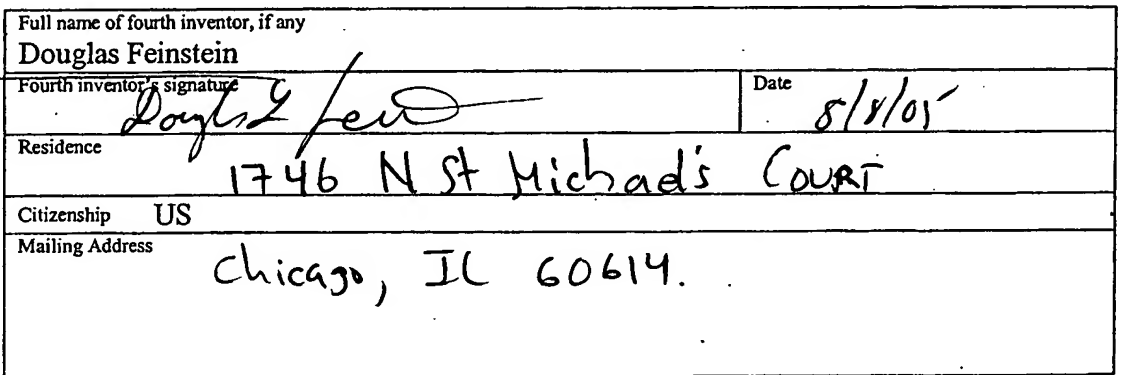 Full name of fourth inventor, if any
Douglas Feinstein
Fourth inventor's signature
Date
8/8/05
Residence
1746 N St Michael's Court
Citizenship US
Mailing Address
Chicago, IL 60614.